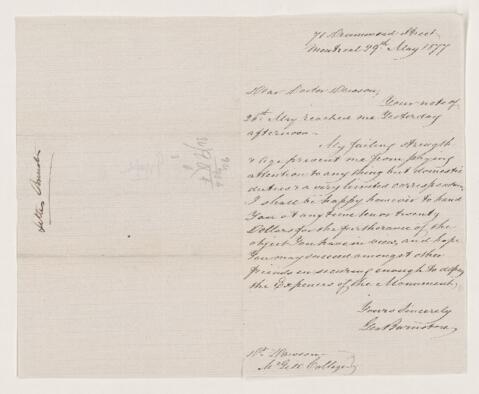 71 Drummond Street
Montreal 29th May 1877
Dear Doctor Dawson,
Your note of
26th May reached me Yesterday
afternoon.
My failing strength
& Age prevent me from paying
attention to any thing but domestic
duties & a very limited correspondence
I shall be happy however to hand
You at any time ten or twenty
Dollars for the furtherance of the
object You have in view, and hope
You may succeed amongst other
friends in securing enough to defray
the Expenses of the Monument
Yours Sincerely
Geo Barnston
Dr. Dawson
McGill College